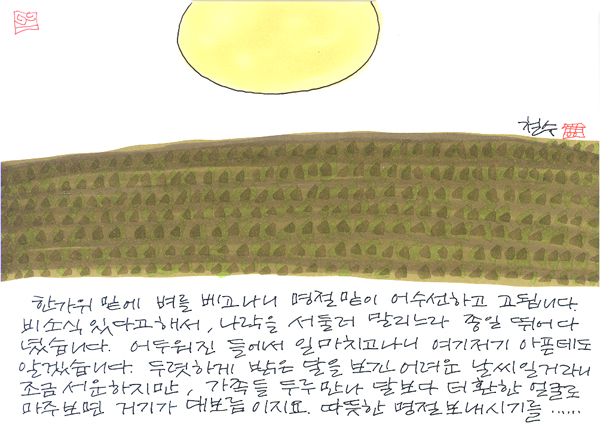 철수
한가위 밑에 벼를 베고나니 명절밑이 어수선하고 고됩니다.
비소식 있다고해서, 나락을 서둘러 말리느라 종일 뛰어다
녔습니다. 어두워진 들에서 일마치고나니 여기저기 아픈데도
알겠습니다. 두렷하게 밝은 달을 보긴 어려운 날씨일거라니
조금 서운하지만, 가족들 두루만나 달보다 더 환한 얼굴로
마주보면 거기가 대보름이지요. 따뜻한 명절보내시기를......